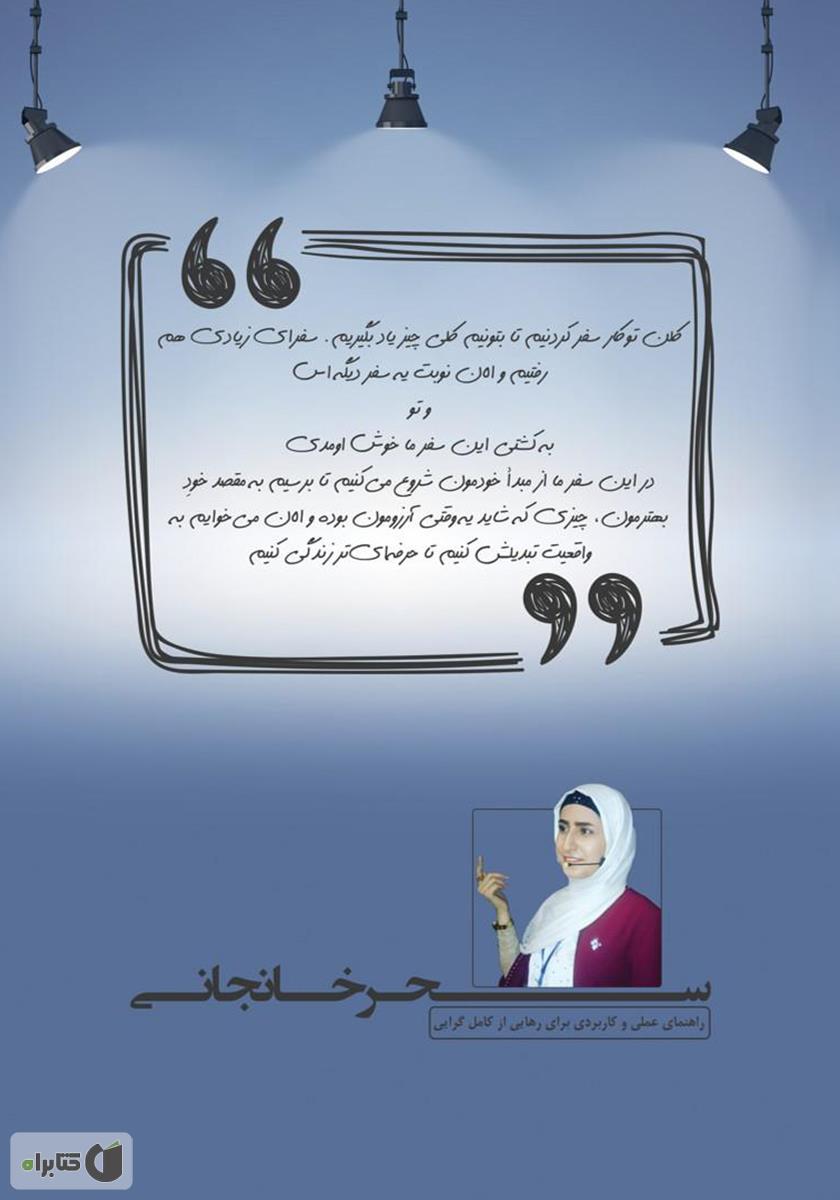 کلن تو کار سفر کردنیم تا بتونیم کلی چیز یاد بگیریم. سفرای زیادی هم
رفتیم و الان نوبت یه سفر دیگه اس
و تو
به کشتی این سفر ما خوش اومدی
در این سفر ما از مبدأ خودمون شروع می‌کنیم تا برسیم به مقصد خودِ
بهترمون، چیزی که شاید یه وقتی آرزومون بوده و الان می‌خوایم به
واقعیت تبدیلش کنیم تا حرفه‌ای‌تر زندگی کنیم
سحر خانجانی
راهنمای عملی و کاربردی برای رهایی از کامل گرایی
کتابراه